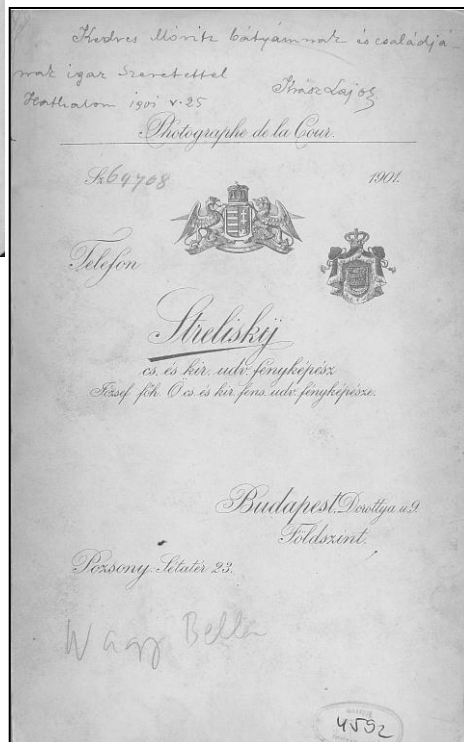 Kedves Móritz bátyámnak és családjá-
nak igaz szeretettel
1901 V. 25 Lajos
Photographe de la Cour.
Sz 64708 1901.
Telefón
Streliskÿ
cs. és kir. udv. fényképész
József főh. Ő cs. és kir. fens. udv. fényképésze.
Budapest. Dorottya u. 9.
Földszint.
Pozsony. Sétatér 23.
Bella
4592